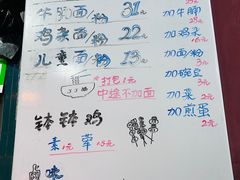 牛 面/粉 31元
加牛脚 23元
鸡杂面/粉 22元
加鸡杂
儿童面/粉 13元
加面/粉
打包1元
中途不加面
加豌豆 3元
加菜 2元
加煎蛋 2元
钵钵鸡
素1元 荤
卤